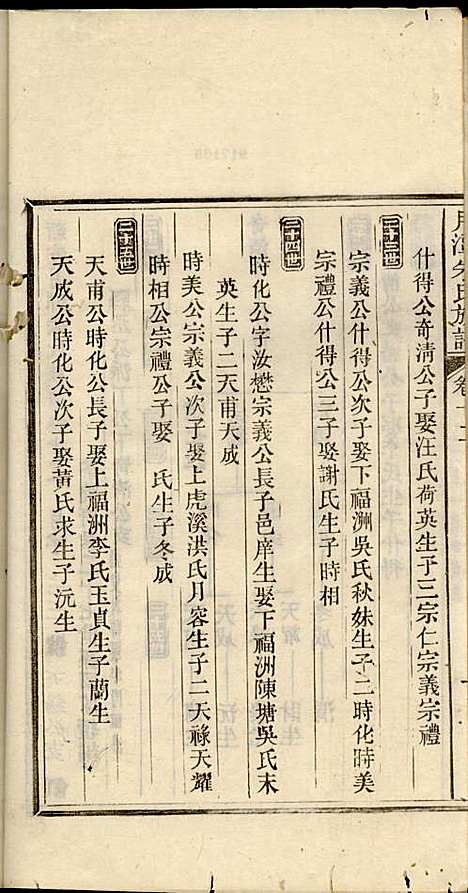 朱氏族譜
什得公奇清公子娶汪氏荷英生子三宗仁宗義宗禮
二十三世
宗義公什得公次子娶下福洲吳氏秋妹生子二時化時美
宗禮公什得公三子娶謝氏生子時相
二十四世
時化公字汝懋宗義公長子邑庠生娶下福洲陳塘吳氏末
英生子二天甫天成
時美公宗義公次子娶上虎溪洪氏月容生子二天祿天耀
時相公宗禮公子娶 氏生子冬成
二十五世
天甫公時化公長子娶上福洲李氏玉貞生子蘭生
天成公時化公次子娶黃氏求生子沅生